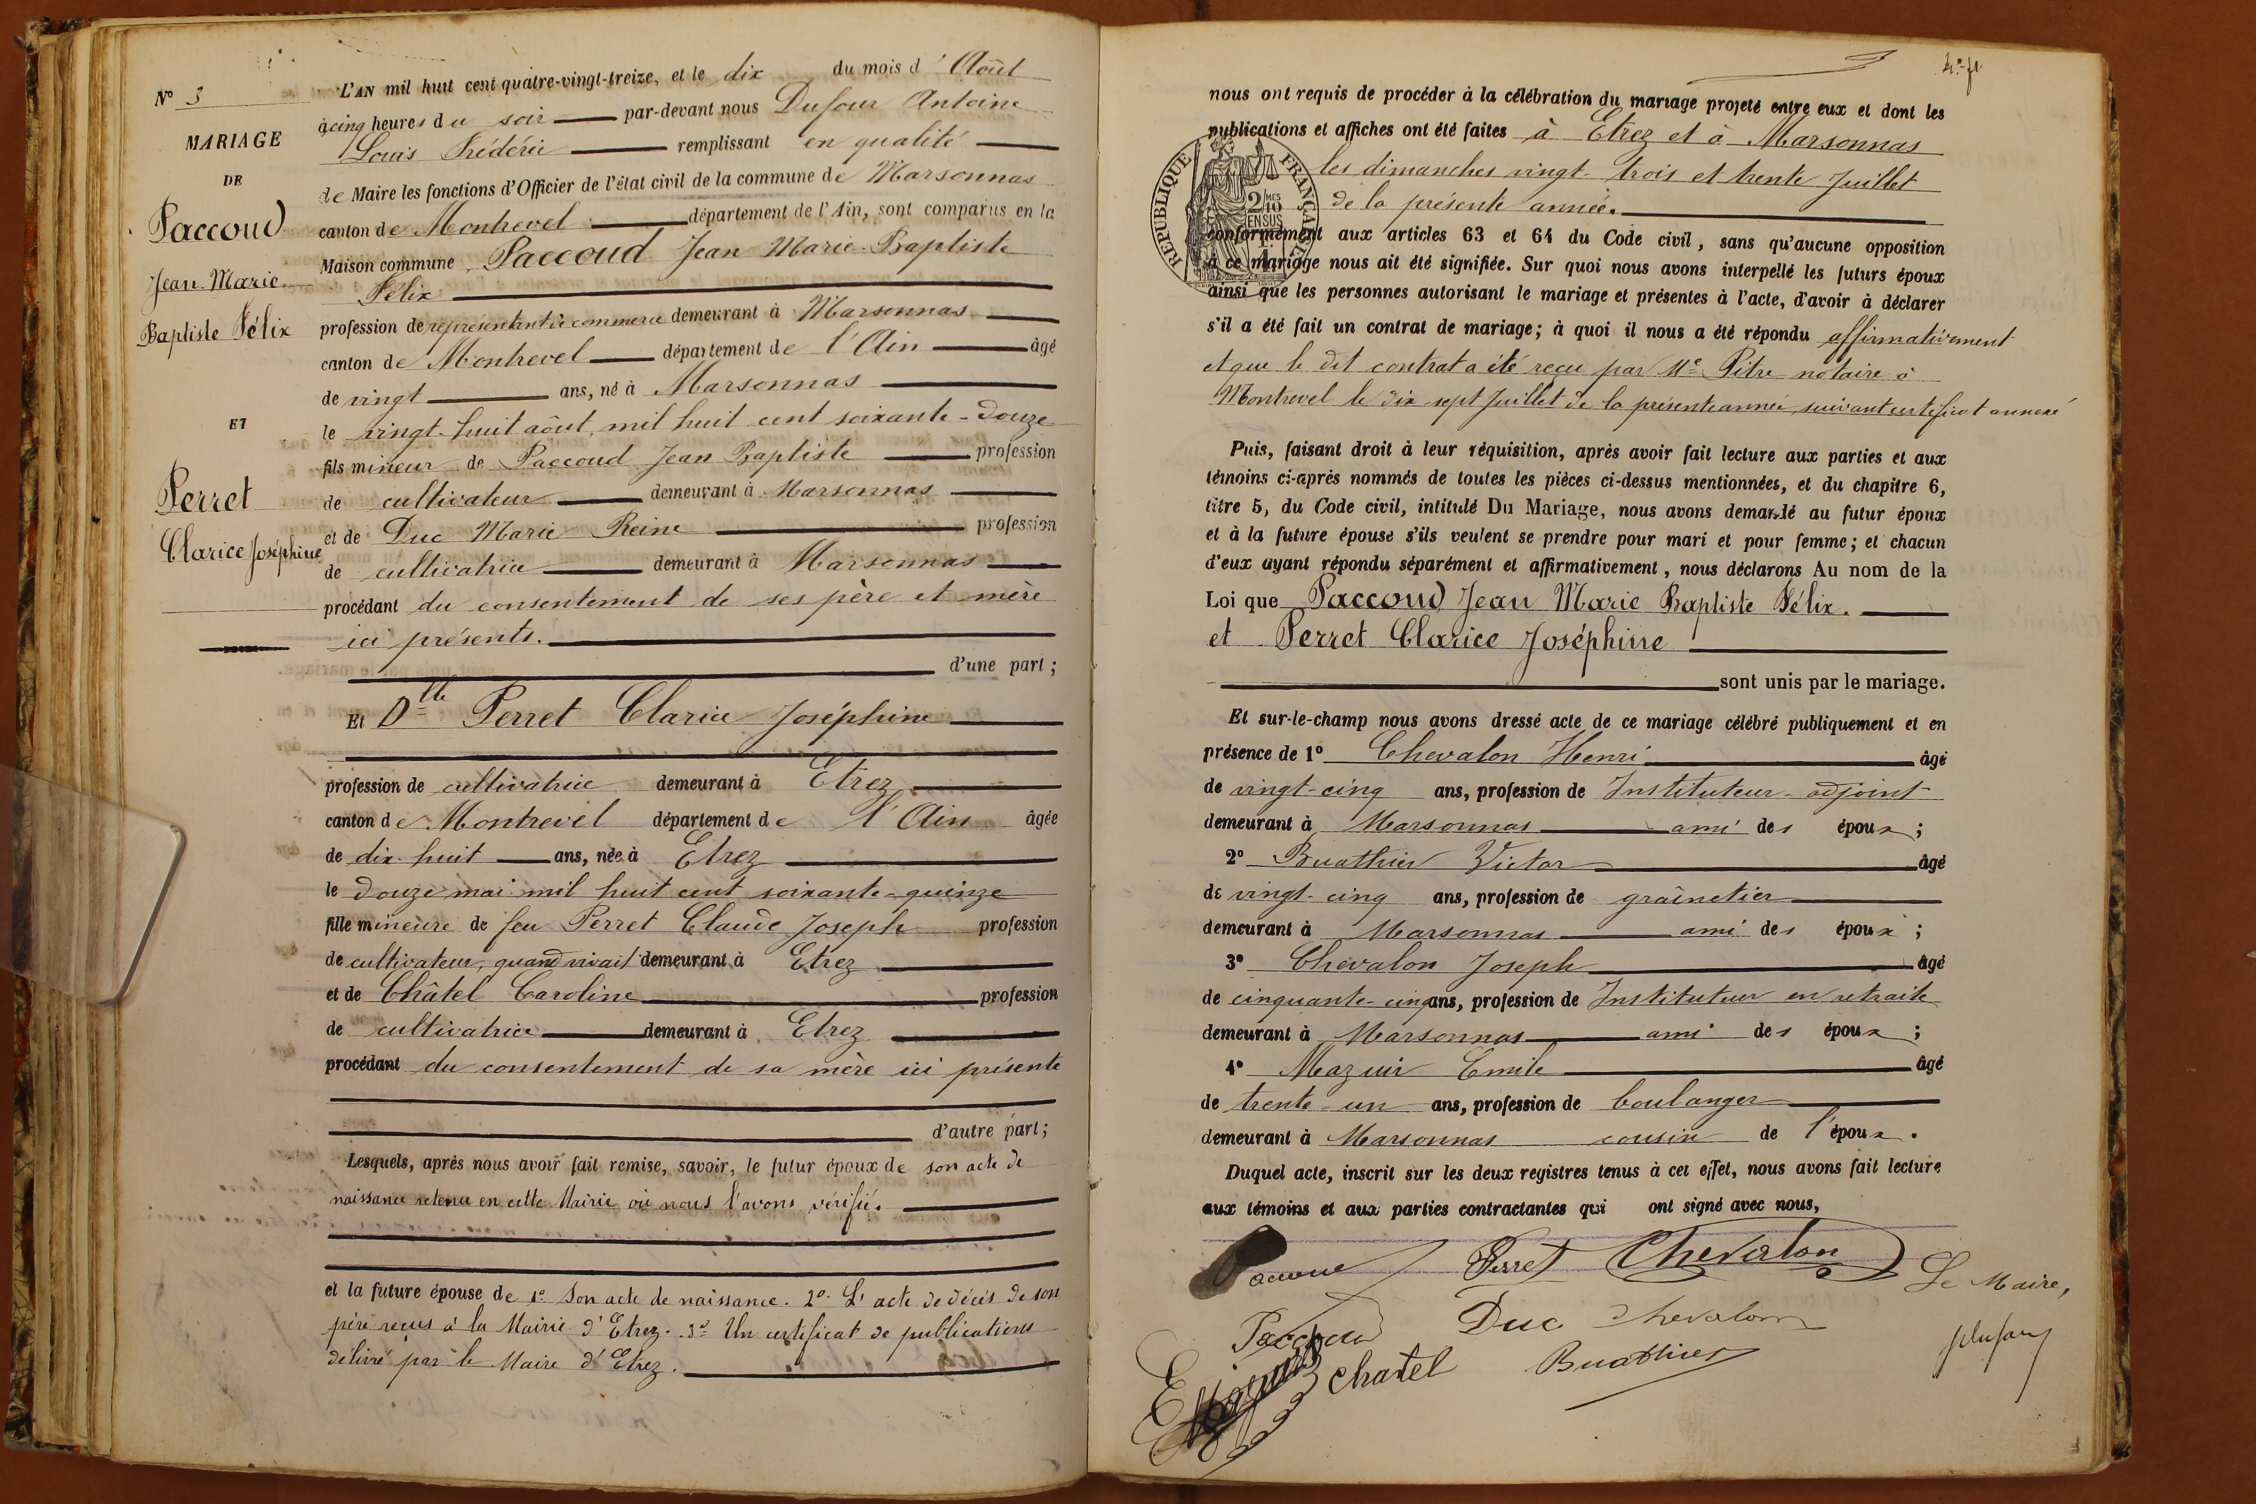 N° 3
MARIAGE
DE
Paccoud
Jean-Marie
Baptiste Félix
ET
Perret
Clarice Joséphine
L'AN mil huit cent quatre-vingt-treize, et le dix du mois d'Août
à cinq heures du soir par-devant nous Dufour Antoine
Louis Frédéric remplissant en qualité
de Maire les fonctions d'Officier de l'état civil de la commune de Marsonnas
canton de Montrevel département de l'Ain, sont comparus en la
Maison commune Paccoud Jean Marie Baptiste
Félix
profession de représentant de commerce demeurant à Marsonnas
canton de Montrevel département de l'Ain âgé
de vingt ans, né à Marsonnas
le vingt-huit août mil huit cent soixante-douze
fils mineur de Paccoud Jean Baptiste profession
de cultivateur demeurant à Marsonnas
et de Duc Marie Reine profession
de cultivatrice demeurant à Marsonnas
procédant du consentement de ses père et mère
ici présents.
d'une part;
Et Dlle Perret Clarice Joséphine
profession de cultivatrice demeurant à Etrez
canton de Montrevel département de l'Ain âgée
de dix-huit ans, née à Etrez
le douze mai mil huit cent soixante-quinze
fille mineure de feu Perret Claude Joseph profession
de cultivateur, quand vivait demeurant à Etrez
et de Châtel Caroline profession
de cultivatrice demeurant à Etrez
procédant du consentement de sa mère ici présente
d'autre part;
Lesquels, après nous avoir fait remise, savoir, le futur époux de son acte de
naissance retenu en cette Mairie où nous l'avons vérifié.
et la future épouse de 1° Son acte de naissance. 2° L'acte de décès de son
père reçus à la Mairie d'Etrez. 3° Un certificat de publications
délivré par le Maire d'Etrez.
nous ont requis de procéder à la célébration du mariage projeté entre eux et dont les
publications et affiches ont été faites à Etrez et à Marsonnas
les dimanches vingt-trois et trente Juillet
de la présente année.
RÉPUBLIQUE FRANÇAISE
2/10 MES
EN SUS
conformément aux articles 63 et 64 du Code civil, sans qu'aucune opposition
à ce mariage nous ait été signifiée. Sur quoi nous avons interpellé les futurs époux
ainsi que les personnes autorisant le mariage et présentes à l'acte, d'avoir à déclarer
s'il a été fait un contrat de mariage; à quoi il nous a été répondu affirmativement
et que le dit contrat a été reçu par Me Pitre notaire à
Montrevel le dix sept Juillet de la présente année, suivant certificat annexé
Puis, faisant droit à leur réquisition, après avoir fait lecture aux parties et aux
témoins ci-après nommés de toutes les pièces ci-dessus mentionnées, et du chapitre 6,
titre 5, du Code civil, intitulé Du Mariage, nous avons demandé au futur époux
et à la future épouse s'ils veulent se prendre pour mari et pour femme; et chacun
d'eux ayant répondu séparément et affirmativement, nous déclarons Au nom de la
Loi que Paccoud Jean Marie Baptiste Félix.
et Perret Clarice Joséphine
sont unis par le mariage.
Et sur-le-champ nous avons dressé acte de ce mariage célébré publiquement et en
présence de 1° Chevalon Henri âgé
de vingt-cinq ans, profession de Instituteur-adjoint
demeurant à Marsonnas ami des époux;
2° Buathier Victor âgé
de vingt-cinq ans, profession de graînetier
demeurant à Marsonnas ami des époux;
3° Chevalon Joseph âgé
de cinquante-cinq ans, profession de Instituteur en retraite
demeurant à Marsonnas ami des époux;
4° Mazuir Emile âgé
de trente-un ans, profession de boulanger
demeurant à Marsonnas cousin de l'époux.
Duquel acte, inscrit sur les deux registres tenus à cet effet, nous avons fait lecture
aux témoins et aux parties contractantes qui ont signé avec nous,
Perret Chevalon Le Maire,
Paccoud Duc Chevalon
Chatel Buathier Dufour